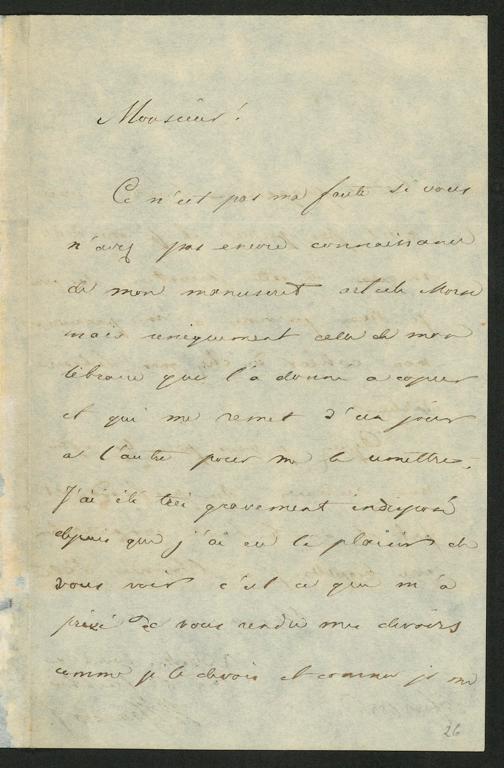 Monsieur!
Ce n'est pas ma faute si vous
n'avez pas encore connaissance
de mon manuscrit article Morse
mais uniquement celle de mon
libraire que l'a donné a copier
et qui me remet d'un jour
a l'autre pour me le remettre.
J'ai été très gravement indisposé
depuis que j'ai eu le plaisir de
vous voir c'est ce qui m'a
privé de vous rendre mes devoirs
comme je le devois et comme je me
26